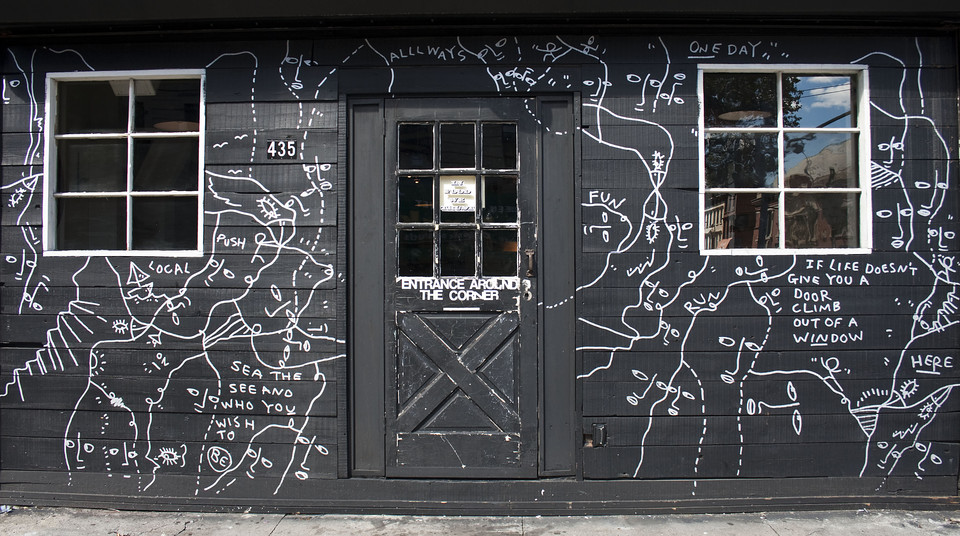 ALLLWAYS
ONE DAY
435
IN
FOOD
WE
TRUST
FUN
PUSH
LOCAL
ENTRANCE AROUND
THE CORNER
RUN
IF LIFE DOESN'T
GIVE YOU A
DOOR
CLIMB
OUT OF A
WINDOW
HERE
SEA THE
SEE AND
WHO YOU
WISH
TO
BE